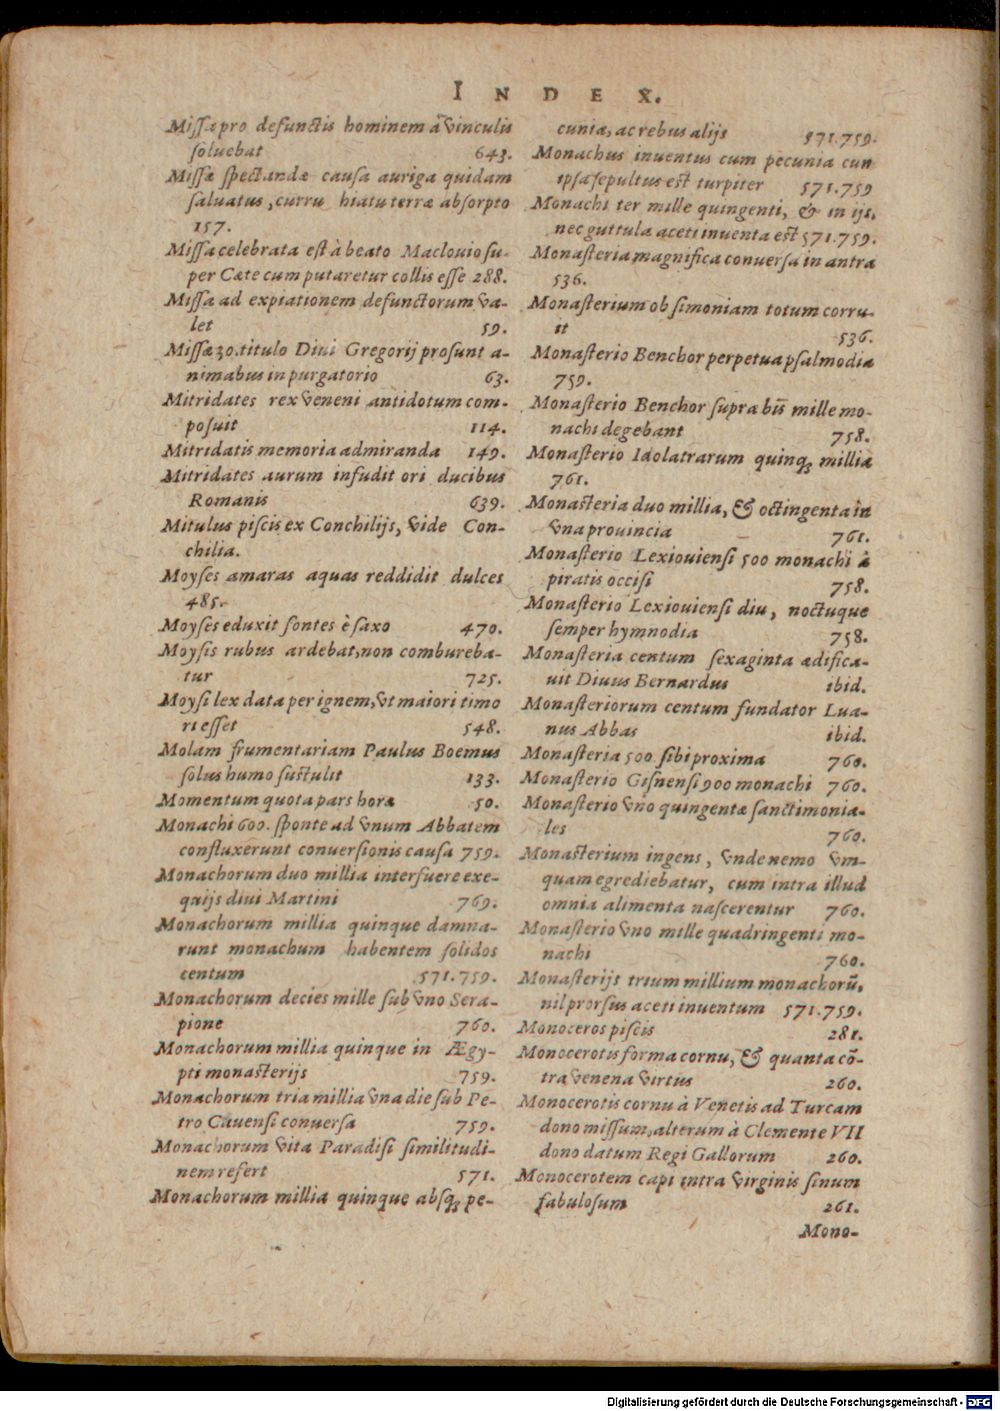 INDEX.
Missæ pro defunctis hominem à vinculis
soluebat 643.
Missæ spectandæ causa auriga quidam
saluatus, curru hiatu terræ absorpto
157.
Missa celebrata est à beato Maclouio su-
per Cæte cum putaretur collis esse 288.
Missa ad expiationem defunctorum va-
let 59.
Missæ 30. titulo Diui Gregorij prosunt a-
nimabus in purgatorio 63.
Mitridates rex veneni antidotum com-
posuit 114.
Mitridatis memoria admiranda 149.
Mitridates aurum infudit ori ducibus
Romanis 639.
Mitulus piscis ex Conchilijs, vide Con-
chilia.
Moyses amaras aquas reddidit dulces
485.
Moyses eduxit fontes è saxo 470.
Moysis rubus ardebat, non combureba-
tur 725.
Moysi lex data per ignem, vt maiori timo
ri esset 548.
Molam frumentariam Paulus Boemus
solus humo sustulit 133.
Momentum quota pars horæ 50.
Monachi 600. sponte ad vnum Abbatem
confluxerunt conuersionis causa 759.
Monachorum duo millia interfuere exe-
quijs diui Martini 769.
Monachorum millia quinque damna-
runt monachum habentem solidos
centum 571.759.
Monachorum decies mille sub vno Sera-
pione 760.
Monachorum millia quinque in Ægy-
pti monasterijs 759.
Monachorum tria millia vna die sub Pe-
tro Cauensi conuersa 759.
Monachorum vita Paradisi similitudi-
nem refert 571.
Monachorum millia quinque absq; pe-
cunia, ac rebus alijs 571.759.
Monachus inuentus cum pecunia cum
ipsa sepultus est turpiter 571.759
Monachi ter mille quingenti, & in ijs,
nec guttula aceti inuenta est 571.759.
Monasteria magnifica conuersa in antra
536.
Monasterium ob simoniam totum corru-
it 536.
Monasterio Benchor perpetua psalmodia
759.
Monasterio Benchor supra bis mille mo-
nachi degebant 758.
Monasterio Idolatrarum quinq; millia
761.
Monasteria duo millia, & octingenta in
vna prouincia 761.
Monasterio Lexiouiensi 500 monachi à
piratis occisi 758.
Monasterio Lexiouiensi diu, noctuque
semper hymnodia 758.
Monasteria centum sexaginta ædifica-
uit Diuus Bernardus ibid.
Monasteriorum centum fundator Lua-
nus Abbas ibid.
Monasteria 500 sibi proxima 760.
Monasterio Gisnensi 900 monachi 760.
Monasterio vno quingentæ sanctimonia-
les 760.
Monasterium ingens, vnde nemo vm-
quam egrediebatur, cum intra illud
omnia alimenta nascerentur 760.
Monasterio vno mille quadringenti mo-
nachi 760.
Monasterijs trium millium monachorũ,
nil prorsus aceti inuentum 571.759.
Monoceros piscis 281.
Monocerotis forma cornu, & quanta cõ-
tra venena virtus 260.
Monocerotis cornu à Venetis ad Turcam
dono missum, alterum à Clemente VII
dono datum Regi Gallorum 260.
Monocerotem capi intra virginis sinum
fabulosum 261.
Mono-
Digitalisierung gefördert durch die Deutsche Forschungsgemeinschaft - DFG